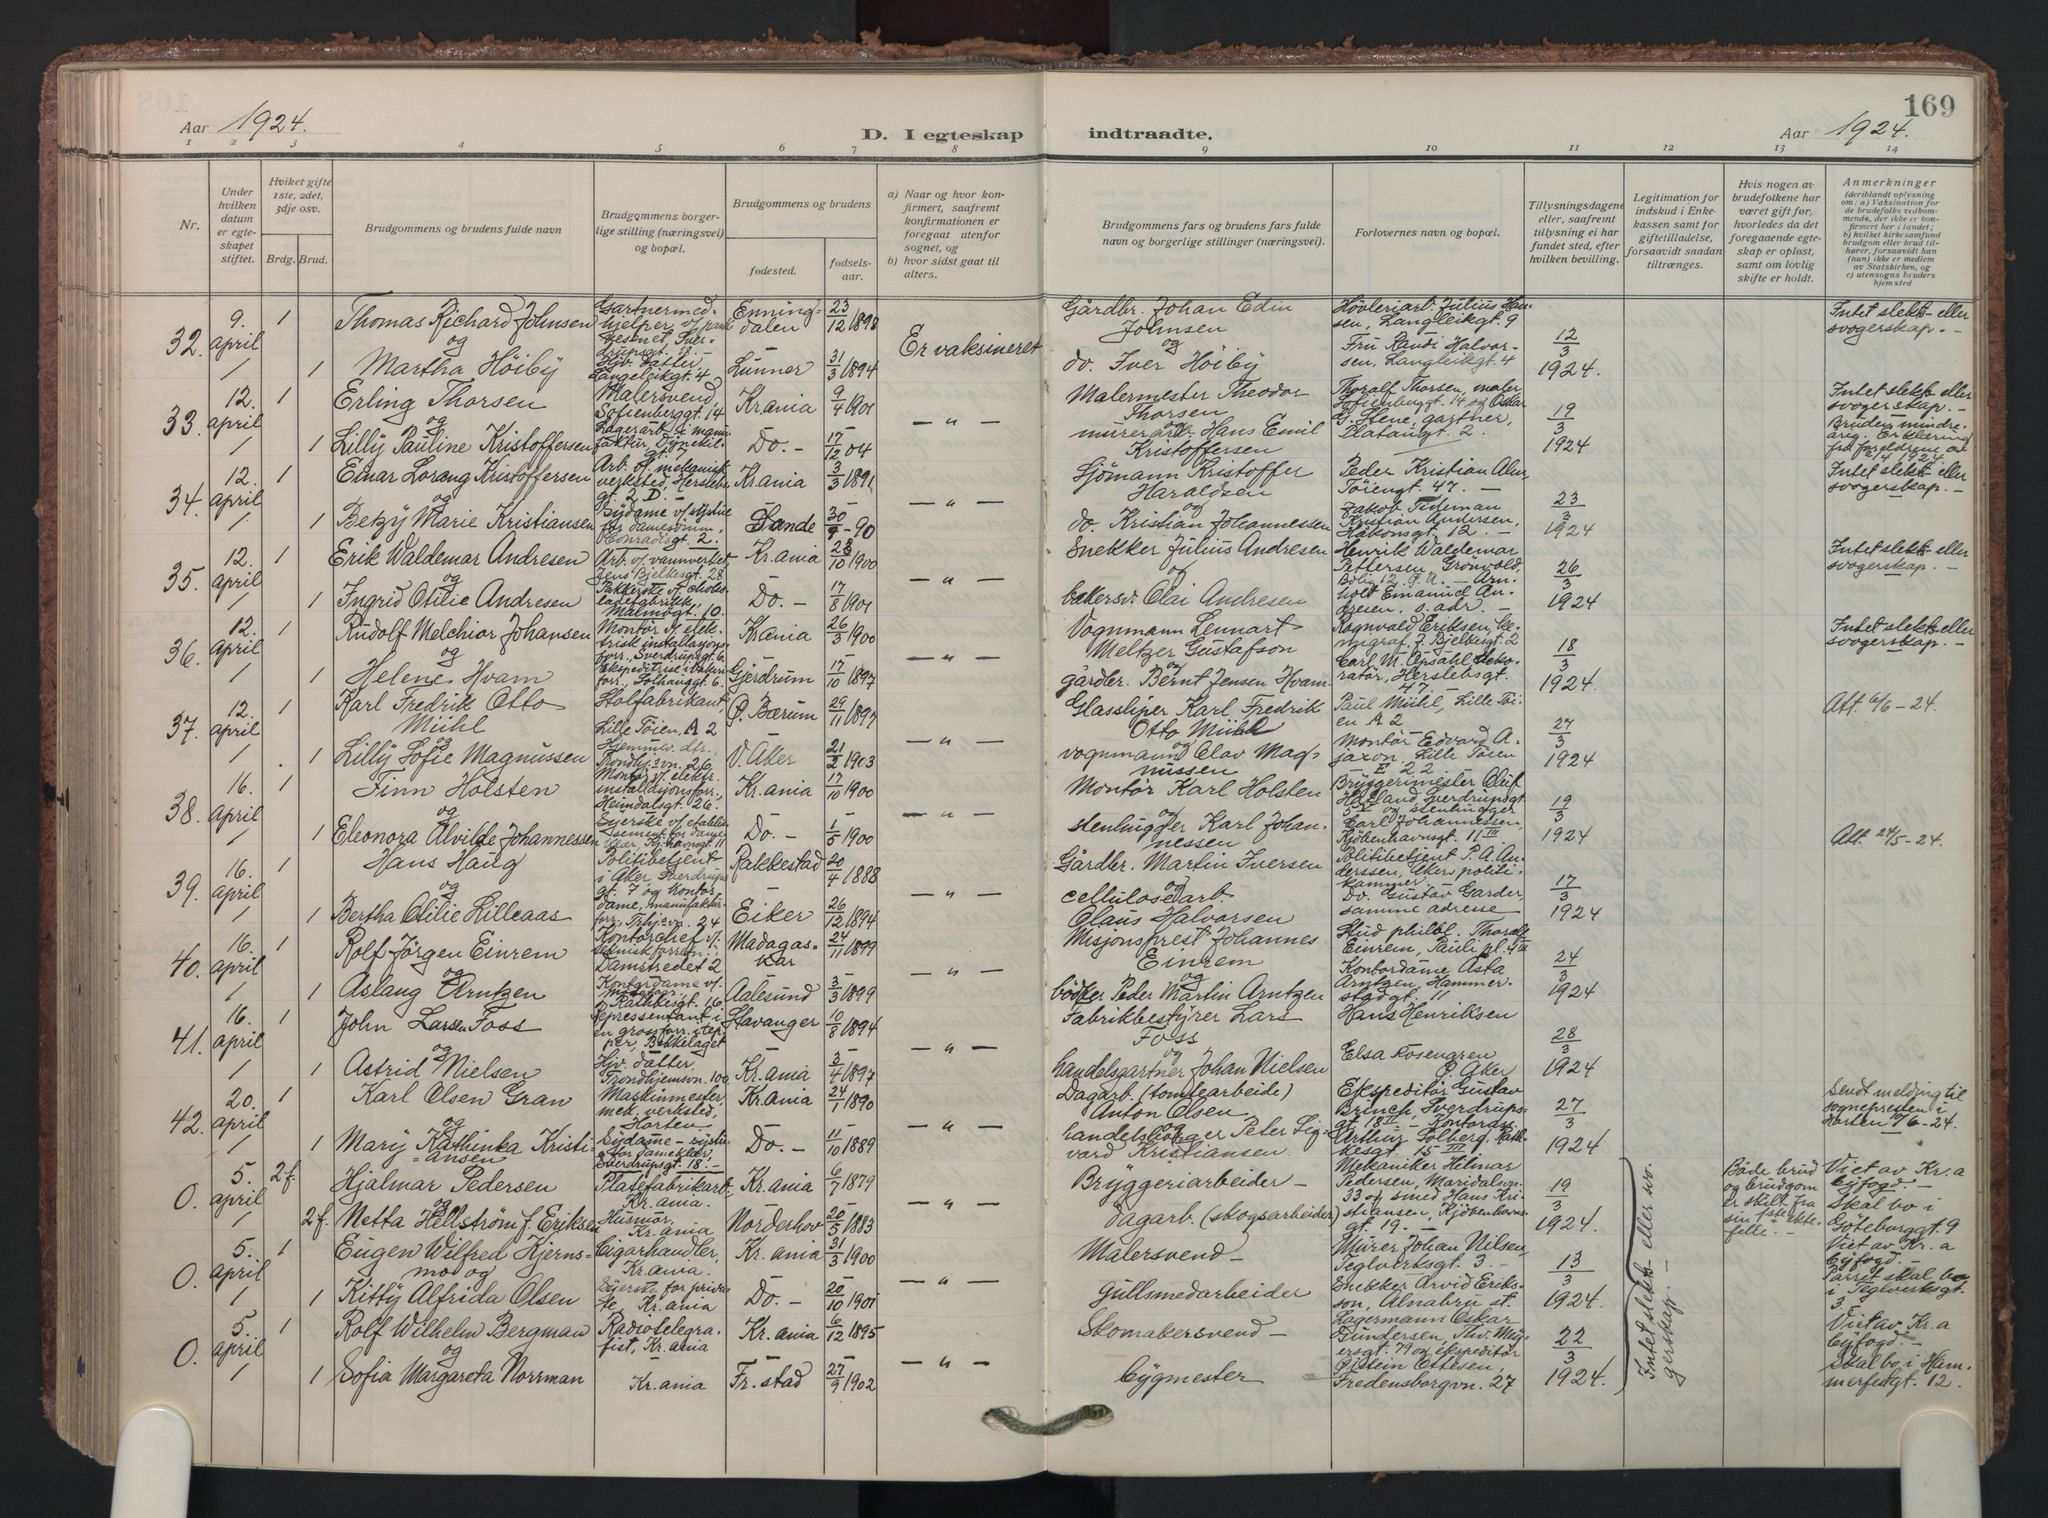 169
Aar 1924.
D. I egteskap indtraadte.
Aar 1924.
1 2 3 4 5 6 7 8 9 10 11 12 13 14
Nr.
Under hvilken datum er egteskapet stiftet.
Hviket gifte 1ste, 2det, 3dje osv.
Brdg. Brud.
Brudgommens og brudens fulde navn
Brudgommens borgerlige stilling (næringsvei) og bopæl.
Brudgommens og brudens
fødested.
fødselsaar.
a) Naar og hvor konfirmert, saafremt konfirmationen er foregaat utenfor sognet, og
b) hvor sidst gaat til alters.
Brudgommens fars og brudens fars fulde navn og borgerlige stillinger (næringsvei).
Forlovernes navn og bopæl.
Tillysningsdagene eller, saafremt tillysning ei har fundet sted, efter hvilken bevilling.
Legitimation for indskud i Enkekassen samt for giftetilladelse, forsaavidt saadan tiltrænges.
Hvis nogen av brudefolkene har været gift før, hvorledes da det foregaaende egteskap er opløst, samt om lovlig skifte er holdt.
Anmerkninger
(deriblandt oplysning om: a) Vaksination for de brudefolks vedkommende, der ikke er konfirmert her i landet; b) hvilket kirkesamfund brudgom eller brud tilhører, forsaavidt han (hun) ikke er medlem av Statskirken, og c) utensogns bruders hjemsted
32. 9. april 1 Thomas Richard Johnsen og
Enningdalen 23/12 1893
Er vaksineret
Gårdbr. Johan Edin Johnsen og
Høvleriarb. Julius Hansen, Langleikgt. 9
12/3 1924.
Intet slekt- eller svogerskap. -
1 Martha Höiby
Hjv. datter Langeleikgt. 4
Lunner 31/3 1894
do. Iver Höiby
Fru Randi Halvorsen, Langleikgt. 4
33. 12. april 1 Erling Thorsen og
Malersvend Sofienberggt. 14
Kr.ania 9/4 1901
Malermester Theodor Thorsen og
Thoralf Thorsen, maler Sofienberggt. 14 og Oskar
19/3 1924
Intet slekt- eller svogerskap. -
1 Lilly Pauline Kristoffersen
Do. - 17/12 04
murerarb. Hans Emil Kristoffersen
G. Stene, gartner, Platougt. 2.
34. 12. april 1 Einar Lorang Kristoffersen og
Arb. v/ mekanisk verksted, Herslebsgt. 2 D. -
Kr.ania 3/3 1891
Sjömann Kristoffer Haraldsen
Peder Kristian Alm Töiengt. 47. -
23/3 1924
Intet slekt- eller svogerskap. -
1 Betzy Marie Kristiansen
Sande 30/9 - 90
do. Kristian Johannessen
Jakob Tideman Kristian Andersen, Håkonsgt. 12. -
35. 12. april 1 Erik Waldemar Andresen og
Arb. v/ vannverket Jens Bjelkesgt. 28
Kr.ania 23/10 1900
Snekker Julius Andresen og
Henrik Waldemar Pettersen, Grönvold,
26/3 1924
Intet slekt- eller svogerskap. -
1 Ingrid Otilie Andresen
Pakkerske v/ chokoladefabrikk Malmøgt. 10.
Do. - 17/8 1901
bakersv. Olai Andresen
Arnholt Emanuel Andresen, s. adr. -
36. 12. april 1 Rudolf Melchior Johansen og
Montör v/ elektrisk installasjonsforr., Sverdrupsgt. 6.
Kr.ania 26/3 1900
Vognmann Lennart Meltzer Gustafson og
Ragnvald Eriksen,
18/3 1924
Intet slekt- eller svogerskap. -
1 Helene Hvam
Gjerdrum 17/10 1897
gårdbr. Bernt Jensen Hvam
Carl M. Opsahl dekoratör, Herslebsgt. 47. -
37. 12. april 1 Karl Fredrik Otto Mühl og
Stolfabrikant Lille Töien, A 2
Ö. Bærum 29/11 1897
Glassliper Karl Fredrik Otto Mühl og
Paul Mühl, Lille Töien A 2
27/3 1924
Att. 6/6 - 24.
1 Lilly Sofie Magnussen
Hjemmev. dtr., Trondhj.vn. 26
V. Aker 21/2 1903
vognmann Olav Magnussen
montör Edvard A. Lille Töien E 22
38. 16. april 1 Finn Holsten og
Montör v/ elektr. installasjonsforr., Heimdalsgt. 26.
Kr.ania 17/10 1900
Montör Karl Holsten og
Bryggerimester Oluf Sverdrupsgt. 5
19/3 1924
1 Eleonora Alvilde Johannessen
Do. - 1/5 1900
stenhugger Karl Johannessen
stenhugger Carl Johannessen, Kjöbenhavnsgt. 11 III
Att. 24/5 - 24.
39. 16. april 1 Hans Haug og
Politibetjent i Aker Sverdrupsgt. 7 og
Rakkestad 20/4 1888
Gårdbr. Martin Iversen og
Politibetjent P. A. Anderssen, Akers politikammer
17/3 1924
1 Bertha Otilie Lilleaas
Kontordame, manufakturforr., Trhj.vn. 24
Eiker 26/12 1894
cellulosearb. Claus Halvorsen
Do. Gustav Garder, samme adresse
40. 16. april 1 Rolf Jörgen Einrem og
Kontorchef v/ Damstredet 2
Madagaskar 24/11 1899
Misjonsprest Johannes Einrem og
Stud philol. Thoralf Einrem, Pauli pl. 4 III
24/3 1924
1 Aslaug Arntzen
Kontordame v/
Aalesund 3/3 1899
bödker Peder Martin Arntzen
Kontordame Asta Arntzen, Hammerstadgt. 11
41. 16. april 1 John Larsen Foss og
Representant i en grossforr. i Bekkelaget
Stavanger 10/8 1894
Fabrikbestyrer Lars Foss og
Hans Henriksen
28/3 1924
1 Astrid Nielsen
Hjv. datter, Trondhjemsvn. 100
Kr.ania 3/4 1897
handelsgartner Johan Nielsen
Elsa Rosengren Ö. Aker
42. 20. april 1 Karl Olsen Gran og
Maskinmester, mek. verksted, Horten.
Kr.ania 24/1 1890
Dagarb. (tomtearbeide) Anton Olsen, og
Ekspeditör Gustav Brinch, Sverdrupsgt. 18 -
27/3 1924
Sendt melding til sognepresten i Horten 10/6 - 24.
1 Mary Kathinka Kristiansen
Sydame - for dameklær, Sverdrupsgt. 18. -
Do. - 11/10 1889
handelsborger Peter Sigvard Kristiansen
Arthur Solberg, Rathkesgt. 15 III.
0. 5. april 2 f. Hjalmar Pedersen og
Platefabrikarb. Kr.ania.
Kr.ania 6/7 1879
Bryggeriarbeider -
Mekaniker Hilmar Pedersen, Maridalsvn. 33 og smed Hans Kristiansen, Kjöbenhavnsgt. 19. -
19/3 1924.
Intet slekt- eller svogerskap. -
Både brud og brudgom er skilt fra sin f. ektefelle. -
Viet av Kr.a Byfogd. - Skal bo i Göteborggt. 9
2 f. Netta Hellström f. Eriksen
Husmor, Kr.ania
Norderhov 20/5 1883
dagarb. (skogsarbeider)
0. 5. april 1 Eugen Wilfred Kjernsmo og
Cigarhandler, Kr.ania.
Kr.ania 31/3 1900
Malersvend -
Murer Johan Nilsen, Teglverksgt. 3. -
13/3 1924
Viet av Kr.a Byfogd. - Parret skal bo i Teglverksgt. 3.
1 Kitty Alfrida Olsen
Syerske for private, Kr.ania
Do. - 20/10 1901
Gullsmedarbeider
Snekker Arvid Eriksson, Alnabru st.
0. 5. april 1 Rolf Wilhelm Bergman og
Radiotelegrafist, Kr.ania
Kr.ania 6/12 1895
Skomakersvend -
Lagermann Oskar Gundersen, Thv. Meyersgt. 79 og ekspeditör
22/3 1924.
Viet av Kr.a Byfogd. - Skal bo i Hammerfestgt. 12.
1 Sofia Margareta Norrman
Kr.ania
Fr.stad 27/9 1902
Bygmester
Öistein Ottesen, Fredensborgvn. 27